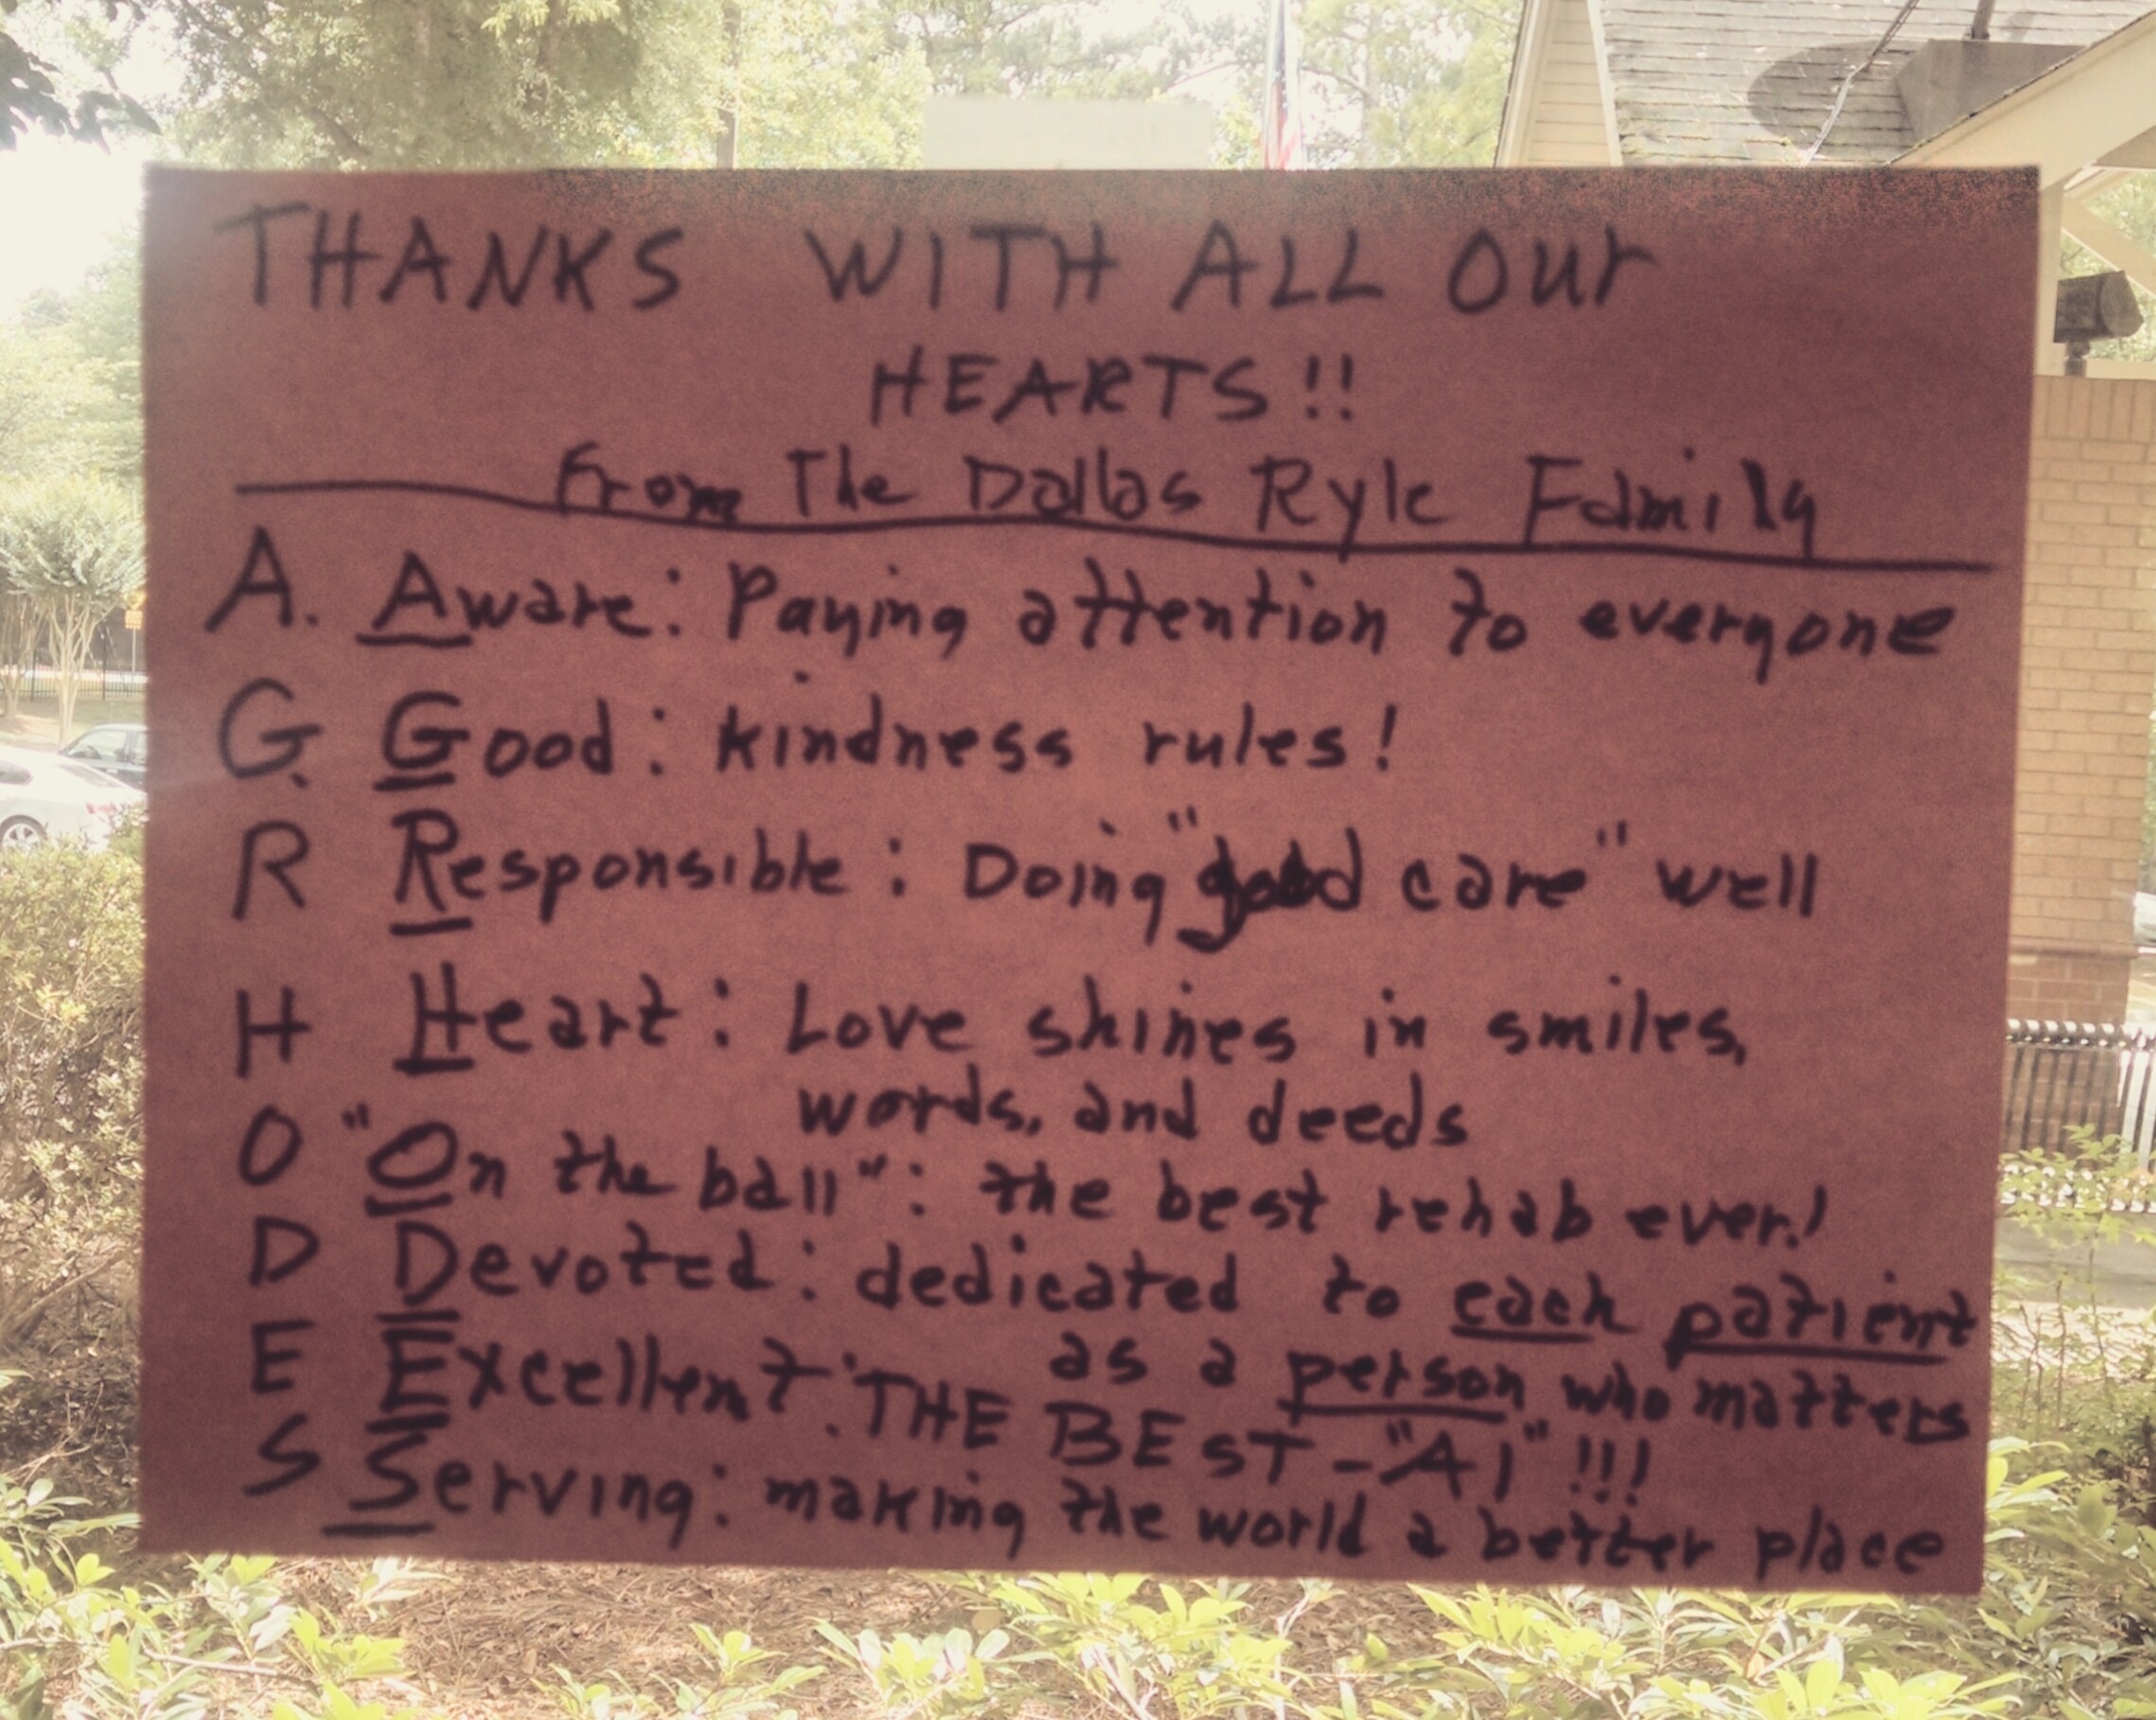 THANKS WITH ALL Our
HEARTS!!
From The Dallas Ryle Family
A. Aware: Paying attention to everyone
G. Good: kindness rules!
R Responsible: Doing "good care" well
H Heart: Love shines in smiles,
words, and deeds
O "On the ball": the best rehab ever!
D Devoted: dedicated to each patient
as a person who matters
E Excellent: THE BEST - "A1" !!!
S Serving: making the world a better place